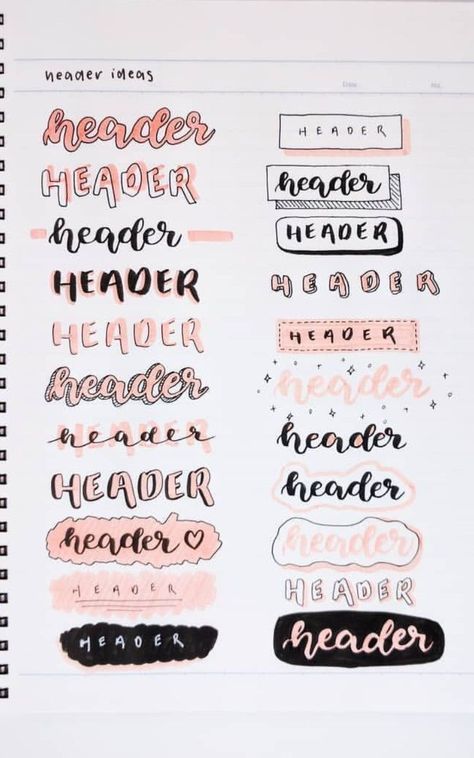 header ideas
Date
No.
header
HEADER
header
HEADER
HEADER
header
header
HEADER
header ♡
HEADER
HEADER
HEADER
header
HEADER
HEADER
HEADER
header
header
header
header
HEADER
header